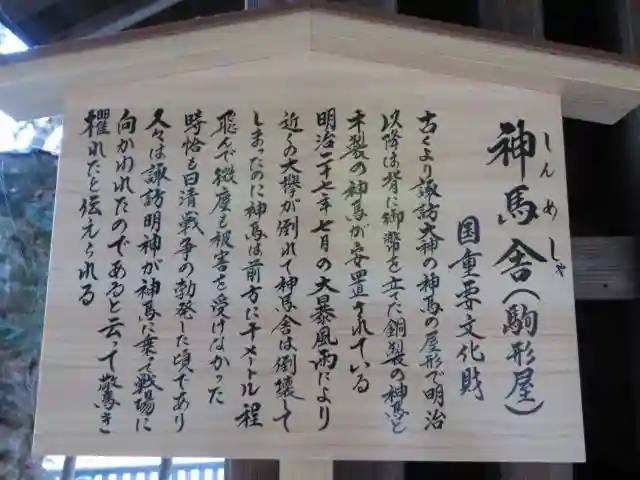 しんめしゃ
神馬舎(駒形屋)
国重要文化財
古くより諏訪大神の神馬の屋形で明治
以降は背に御幣を立てた銅製の神馬と
木製の神馬が安置されている
明治二十七年七月の大暴風雨により
近くの大欅が倒れて神馬舎は倒壊して
しまったのに神馬は前方に十メートル程
飛んで微塵も被害を受けなかった
時恰も日清戦争の勃発した頃であり
人々は諏訪明神が神馬に乗って戦場に
向かわれたのであると云って驚き
懼れたと伝えられる